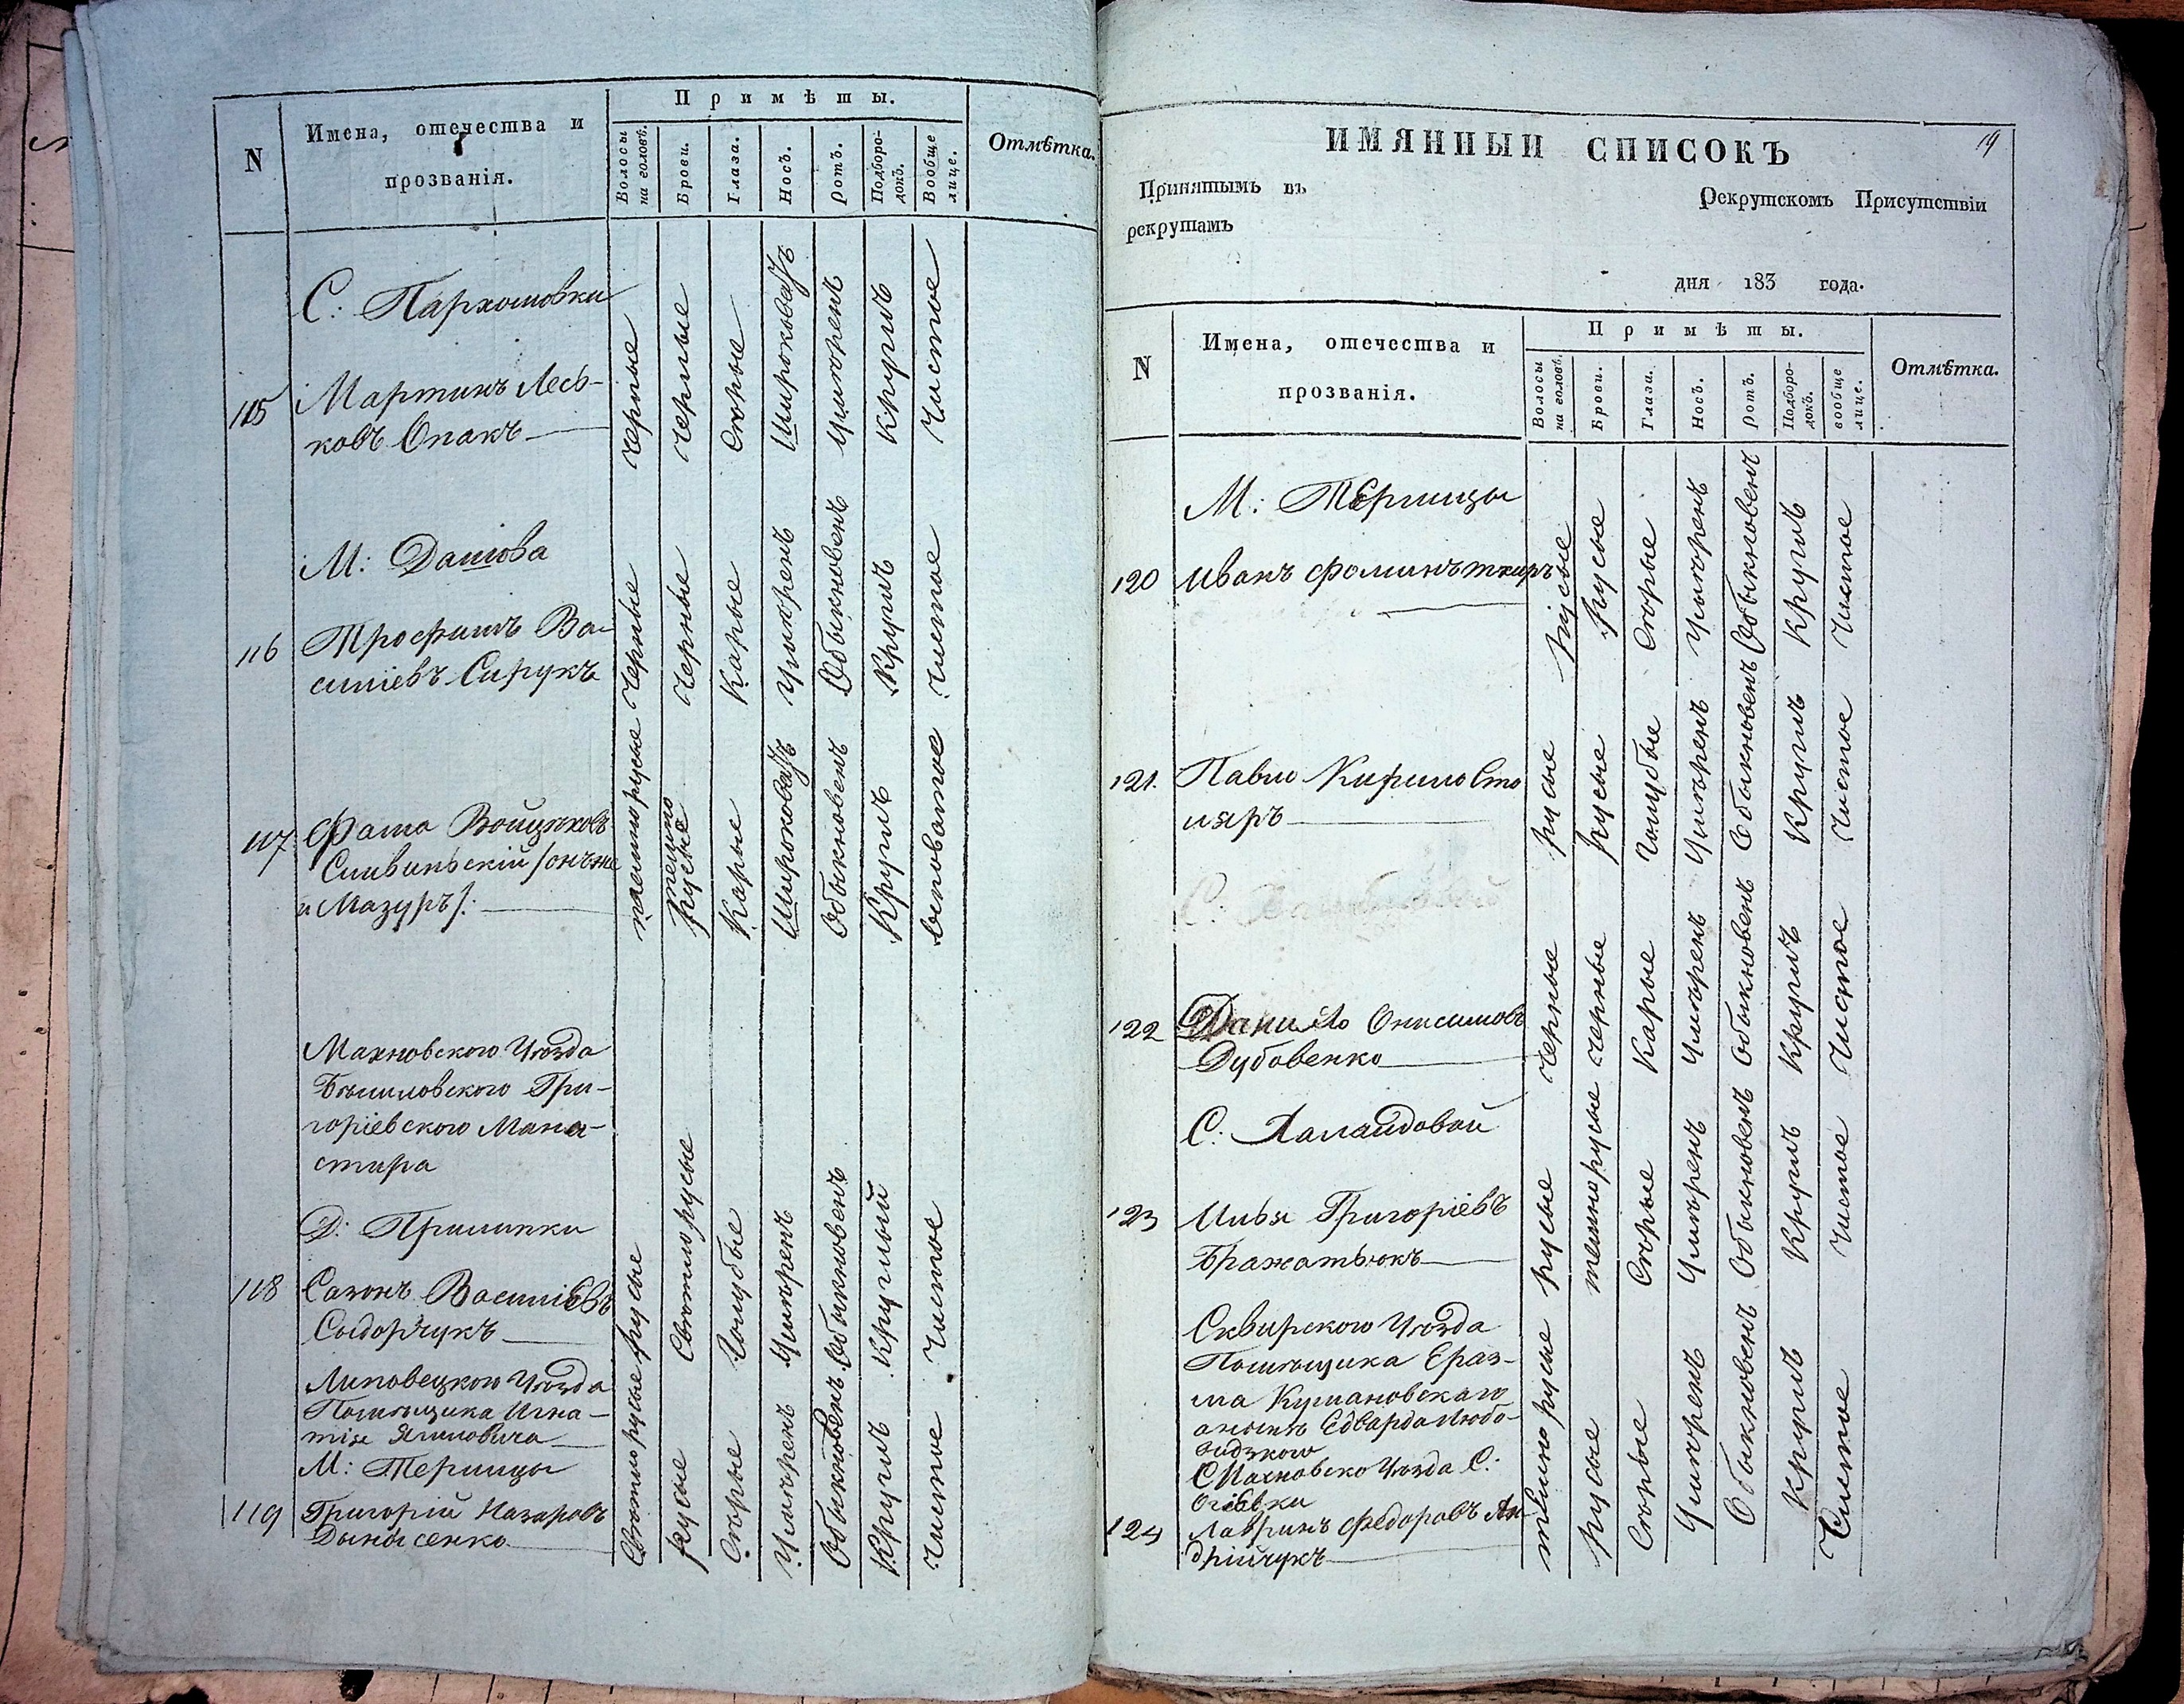 N
Имена, отечества и
прозванія.
Примѣты.
Волосы на головѣ.
Брови.
Глаза.
Носъ.
Ротъ.
Подбородокъ.
Вообще лице.
Отмѣтка.
С: Пархомовки
115 Мартинъ Лесь-
ковъ Опакъ
черные черные Сѣрые Широковатъ Умѣренъ Круглъ Чистое
М: Дашова
116 Трофимъ Ва-
силіевъ Сирукъ
Черные Черные Карые Умѣренъ Обыкновенъ Круглъ Чистое
117 Фома Войцѣховъ
Сливинскій /онъ же
и Мазуръ/:
темнорусые темно русые Карые Широковатъ Обыкновенъ Круглъ весноватое
Махновского Уѣзда
Бѣлиловского Гри-
горіевского Мана-
стира
Д: Прилипки
118 Сазонъ Василіевъ
Сыдорчукъ
русые Свѣтло русые Голубые Умѣренъ Обыкновенъ Круглый Чистое
Липовецкого Уѣзда
Помѣщика Игна-
тія Яниовича
М: Терлицы
119 Григорій Назаровъ
Дынысенко
Свѣтло русые русые Сѣрые Умѣренъ Обыкновенъ Круглъ Чистое
19
ИМЯННЫЙ СПИСОКЪ
Принятымъ въ Рекрутскомъ Присутствіи
рекрутамъ
дня 183 года.
N
Имена, отечества и
прозванія.
Примѣты.
Волосы на головѣ.
Брови.
Глаза.
Носъ.
Ротъ.
Подбородокъ.
вообще лице.
Отмѣтка.
М: Терлицы
120 Иванъ Фоминъ ткаръ
русые русые Сѣрые Умѣренъ Обыкновенъ Круглъ Чистое
121. Павло Кирилов сто
ляръ
русые русые Голубые Умѣренъ Обыкновенъ Круглъ Чистое
С:
122 Данило Онисимовъ
Дубовенко
Черные Черные Карые Умѣренъ Обыкновенъ Круглъ Чистое
С: Халаидовой
123 Илья Григоріевъ
Бражатьюкъ
русые темно русые Сѣрые Умѣренъ Обыкновенъ Круглъ Чистое
Сквирского Уѣзда
Помѣщика Ераз-
ма Кумановскаго
а нынѣ Едварда Любо-
видзкого
С Махновско Уѣзда С:
Огіевки
124 Лавринъ Федоровъ Ан
дрійчукъ
темно русые русые Сѣрые Умѣренъ Обыкновенъ Круглъ Чистое